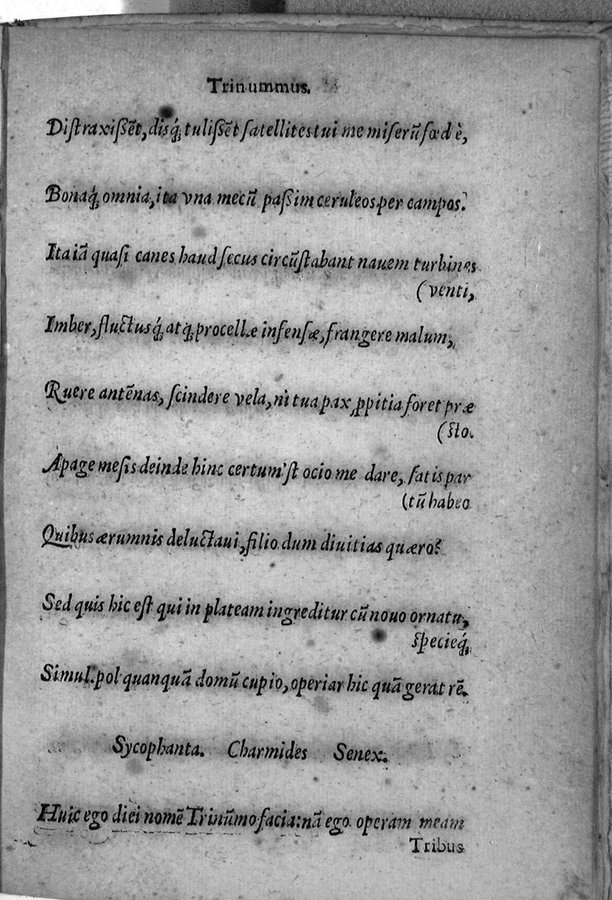 Trinummus.
Distraxissẽt, disq́; tulissẽt satellites tui me miserũ fœdè,
Bonaq́; omnia, ita vna mecũ passim ceruleos per campos.
Ita iã quasi canes haud secus circũstabant nauem turbines
(venti,
Imber, fluctusq́; atq́; procellæ infensæ, frangere malum,
Ruere antẽnas, scindere vela, ni tua pax ꝓpitia foret præ
(sto.
Apage mesis deinde hinc certum'st ocio me dare, satis par
(tũ habeo
Quibus ærumnis deluctaui, filio dum diuitias quæro?
Sed quis hic est qui in plateam ingreditur cũ nouo ornatu,
specieq́;
Simul. pol quanquã domũ cupio, operiar hic quã gerat rẽ.
Sycophanta. Charmides Senex.
Huic ego diei nomẽ Trinũmo facia: nã ego operam meam
Tribus